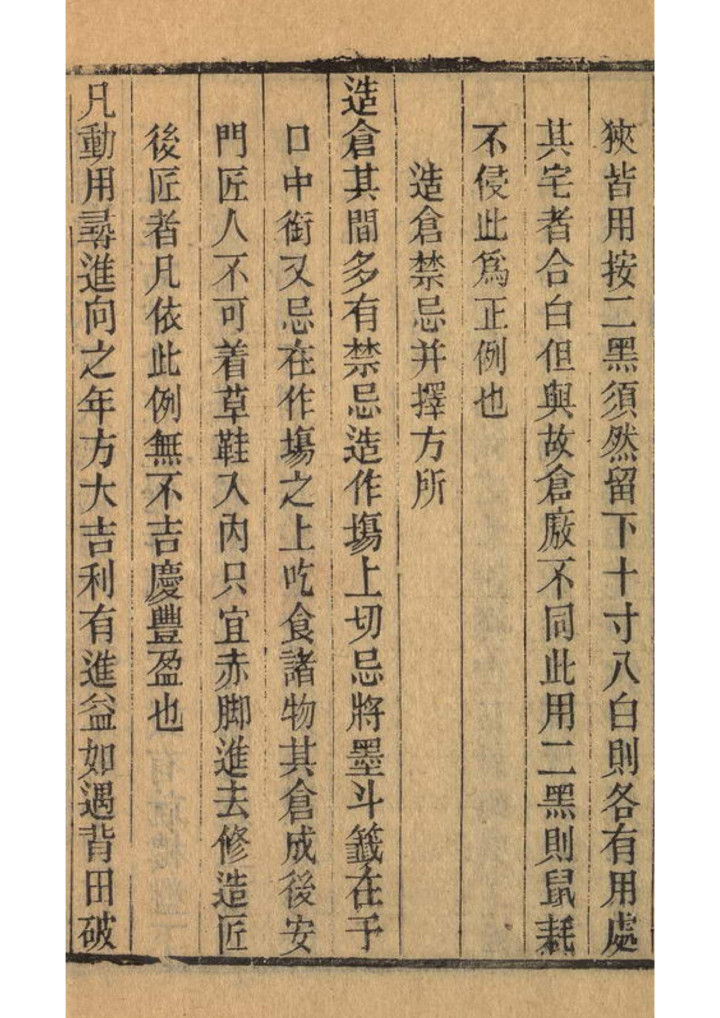 狹皆用按二黑須然留下十寸八白則各有用處
其宅者合白但與故倉廒不同此用二黑則鼠耗
不侵此爲正例也
造倉禁忌并擇方所
造倉其間多有禁忌造作塲上切忌將墨斗籖在于
口中銜又忌在作塲之上吃食諸物其倉成後安
門匠人不可着草鞋入內只宜赤脚進去修造匠
後匠者凡依此例無不吉慶豐盈也
凡動用尋進向之年方大吉利有進益如遇背田破